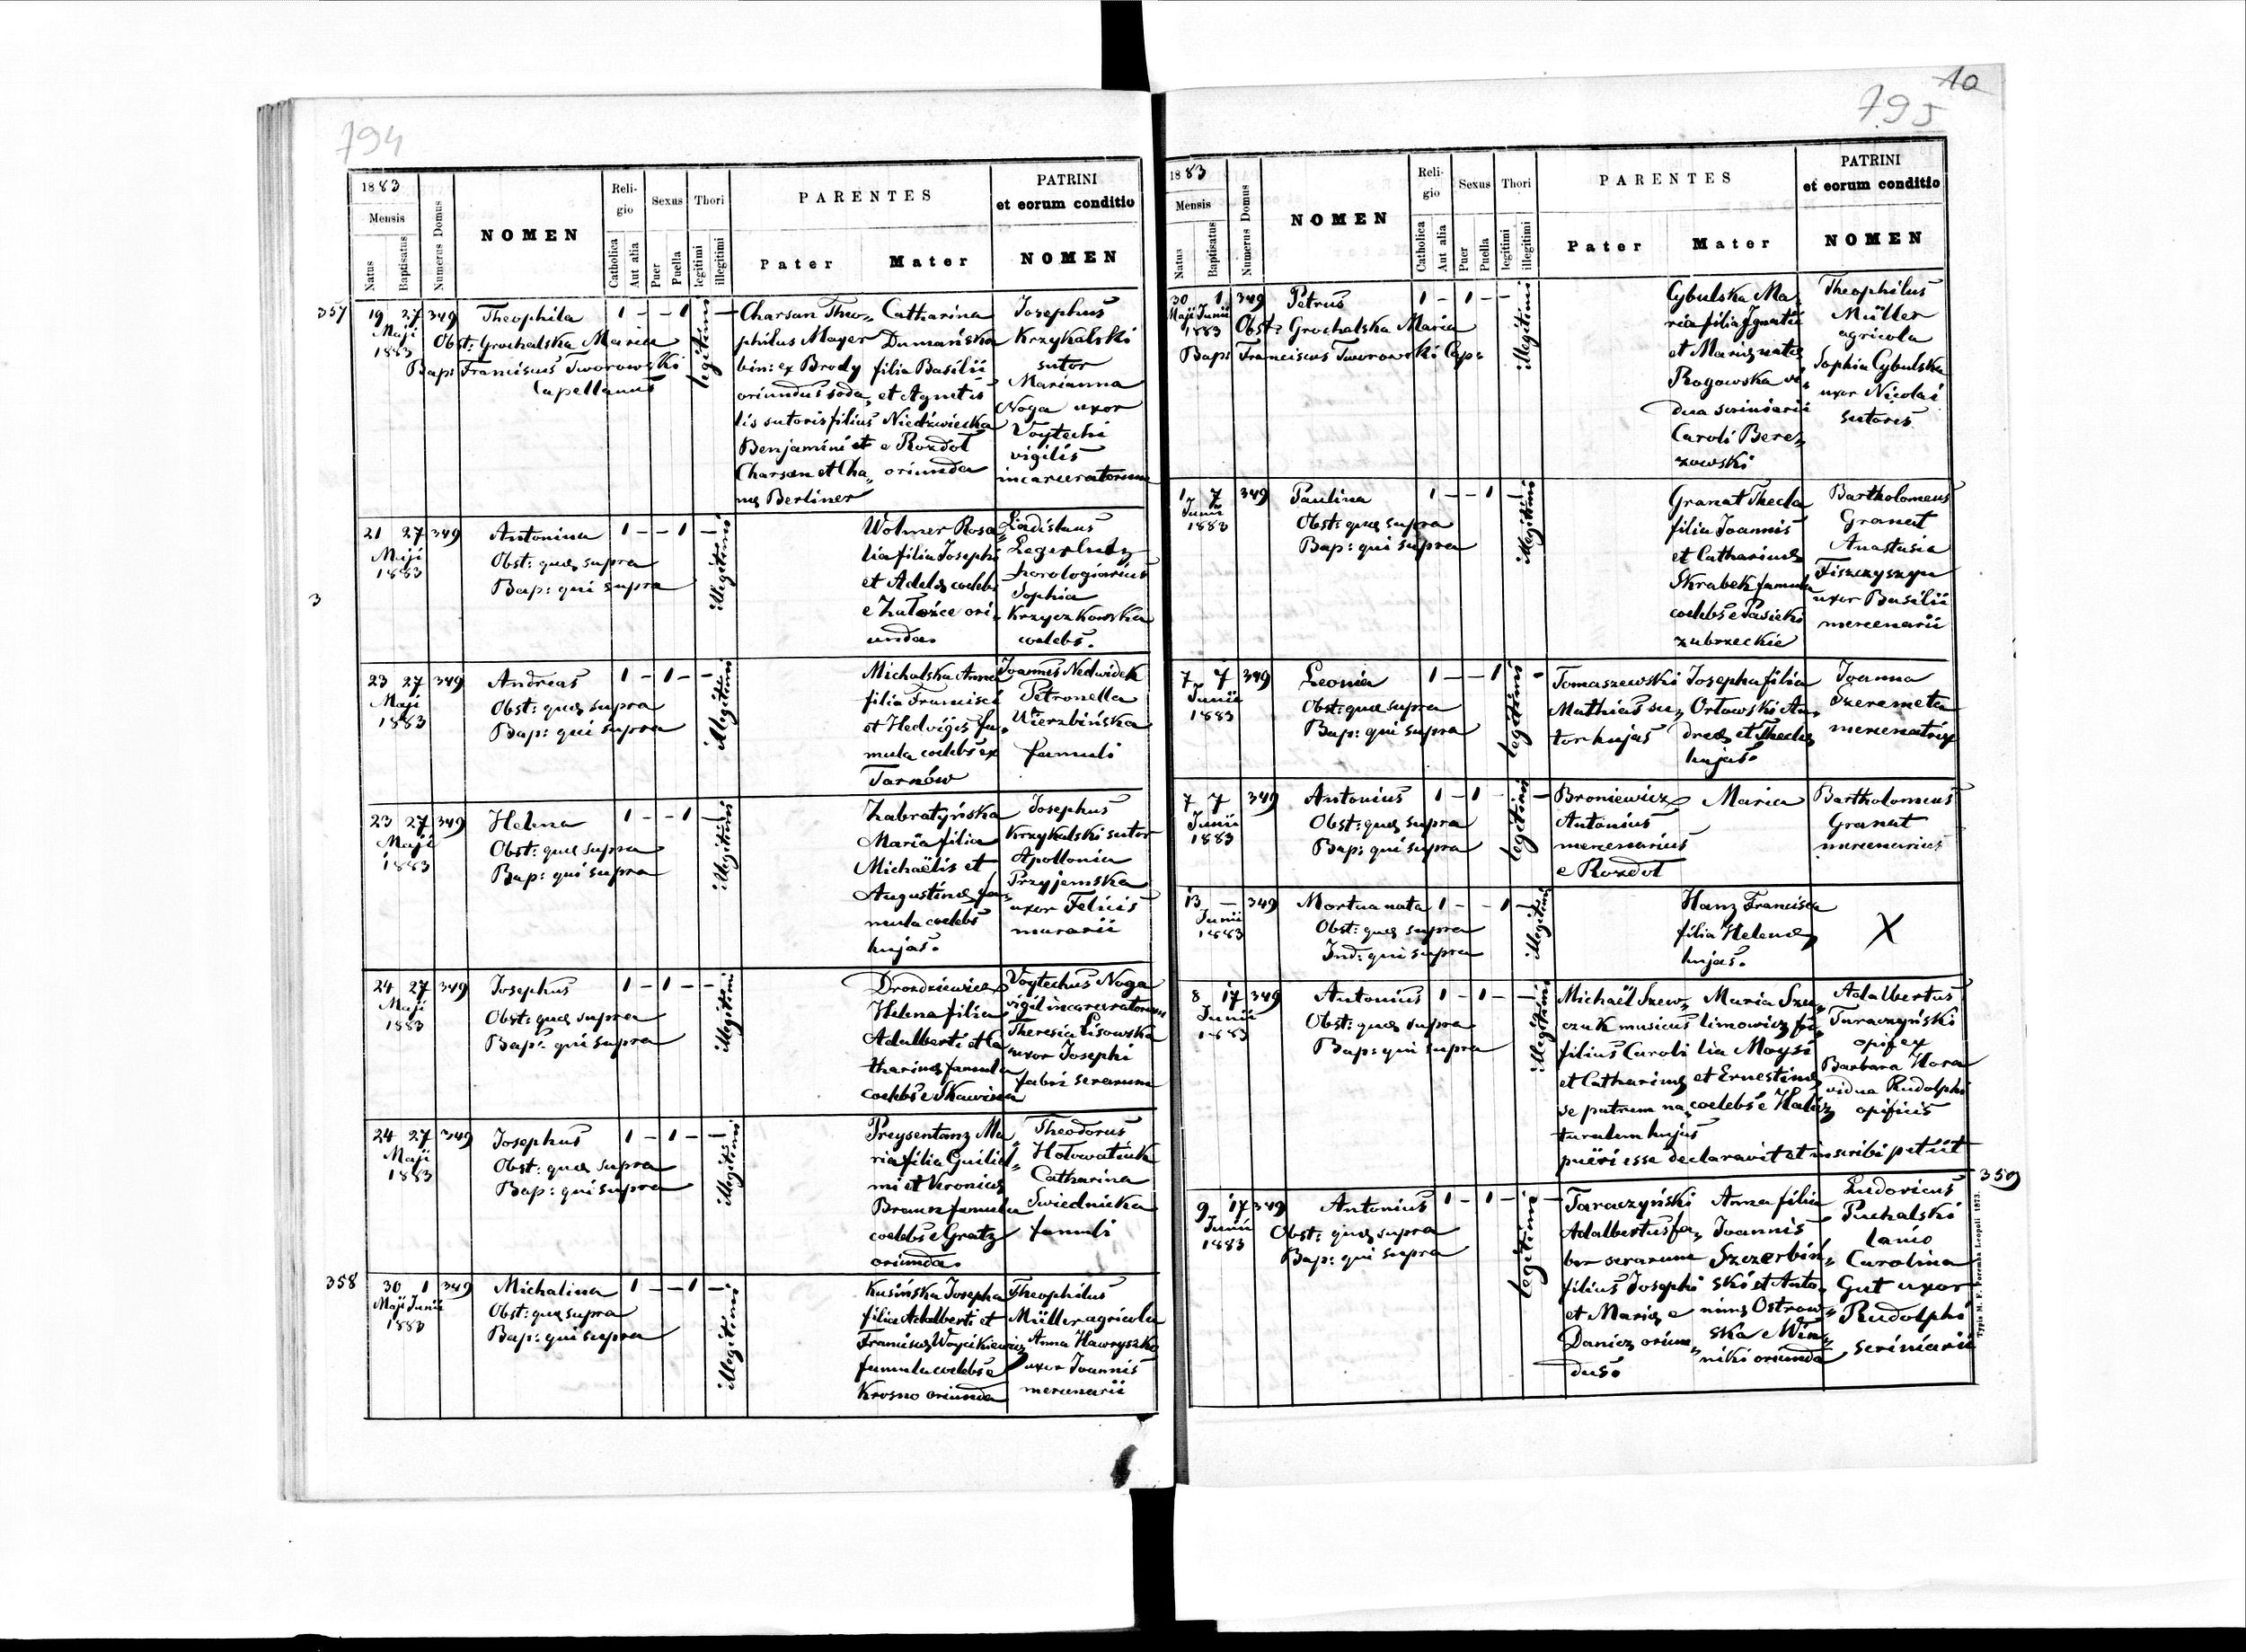 794
1883
Mensis
Natus
Baptisatus
Numerus Domus
NOMEN
Religio
Catholica
Aut alia
Sexus
Puer
Puella
Thori
legitimi
illegitimi
PARENTES
Pater
Mater
PATRINI
et eorum conditio
NOMEN
357
19 27 349
Maji
1883
Theophila
Obst: Grochalska Maria
Bap: Franciscus Tworowski
Capellanus
1 - - 1 -
legitimi
Charsan Theo„
philus Mayer
bin: ex Brody
oriundus soda„
lis sutoris filius
Benjamini et
Charsan et Cha„
næ Berliner
Catharina
Dumańska
filia Basilii
et Agnetis
Niedźwiecka
e Rozdoł
oriunda
Josephus
Krzykalski
sutor
Marianna
Noga uxor
Voytechi
vigilis
incarceratorum
21 27 349
Maji
1883
Antonina
Obst: quæ supra
Bap: qui supra
1 - - 1 -
illegitimi
Wolmer Rosa„
lia filia Josephi
et Adelæ coelebs
e Załoźce ori„
unda.
Ladislaus
horologiarius
Sophia
Krzyczkowska
coelebs.
3
23 27 349
Maji
1883
Andreas
Obst: quæ supra
Bap: qui supra
1 - 1 - -
illegitimi
Michalska Anna
filia Francisci
et Hedvigis fa„
mula coelebs ex
Tarnów
Joannes Nedwidek
Petronella
Wierzbińska
famuli
23 27 349
Maji
1883
Helena
Obst: quæ supra
Bap: qui supra
1 - - 1
illegitimi
Zabratyńska
Maria filia
Michaëlis et
Augustinæ fa„
mula coelebs
hujas.
Josephus
Krzykalski sutor
Apollonia
Przyjemska
uxor Felicis
murarii
24 27 349
Maji
1883
Josephus
Obst: quæ supra
Bap: qui supra
1 - 1 - -
illegitimi
Drozdziewicz
Helena filia
Adalberti et Ca„
tharinæ famula
coelebs e Skawina
Voytechus Noga
vigil incarceratorum
Theresia Lisowska
uxor Josephi
fabri serarum
24 27 349
Maji
1883
Josephus
Obst: quæ supra
Bap: qui supra
1 - 1 - -
illegitimi
Preysentanz Ma„
ria filia Guiliel„
mi et Veronicæ
Braun famula
coelebs e Gratz
oriunda.
Theodorus
Hołowatiuk
Catharina
Swiednicka
famuli
358
30 1 349
Maji Junii
1883
Michalina
Obst: quæ supra
Bap: qui supra
1 - - 1 -
illegitimi
Kusińska Josepha
filia Adalberti et
Franciscæ Woycikiewicz
famula coelebs e
Krosno oriunda
Theophilus
Müller agricola
Anna Hawryszko
uxor Joannis
mercenarii
10
795
1883
Mensis
Natus
Baptisatus
Numerus Domus
NOMEN
Religio
Catholica
Aut alia
Sexus
Puer
Puella
Thori
legitimi
illegitimi
PARENTES
Pater
Mater
PATRINI
et eorum conditio
NOMEN
30 1 349
Maji Junii
1883
Petrus
Obst: Grochalska Maria
Bap: Franciscus Tworowski Cap:
1 - 1 - -
illegitimi
Cybulska Ma„
ria filia Ignatii
et Mariæ natæ
Rogowska vi„
dua scriniarii
Caroli Bere„
zowski
Theophilus
Müller
agricola
Sophia Cybulska
uxor Nicolai
sutoris
1 7 349
Junii
1883
Paulina
Obst: quæ supra
Bap: qui supra
1 - - 1 -
illegitimi
Granat Thecla
filia Joannis
et Catharinæ
Skrabek famula
coelebs e Pasieki
zubrzeckie
Bartholomeus
Granat
Anastasia
Fiszczyszyn
uxor Basilii
mercenarii
7 7 349
Junii
1883
Leonia
Obst: quæ supra
Bap: qui supra
1 - - 1 -
legitimi
Tomaszewski
Mathias su„
tor hujas
Josepha filia
Orłowski An„
dreæ et Theclæ
hujas.
Joanna
Szeremeta
mercenatrix
7 7 349
Junii
1883
Antonius
Obst: quæ supra
Bap: qui supra
1 - 1 - -
legitimi
Broniewicz
Antonius
mercenarius
e Rozdoł
Maria
Bartholomeus
Granat
mercenarius
13 - 349
Junii
1883
Mortua nata
Obst: quæ supra
Ind: qui supra
1 - - 1 -
illegitimi
Hanz Francisca
filia Helenæ
hujas.
X
8 17 349
Junii
1883
Antonius
Obst: quæ supra
Bap: qui supra
1 - 1 - -
illegitimi
Michaël Szew„
czuk musicus
filius Caroli
et Catharinæ
se patrem na„
turalem hujus
pueri esse declaravit et inscribi petiit
Maria Szu„
limowicz fi„
lia Moysi
et Ernestinæ
coelebs e Halicz
Adalbertus
Taraczyński
opifex
Barbara Hora
vidua Rudolphi
opificis
359
9 17 349
Junii
1883
Antonius
Obst: quæ supra
Bap: qui supra
1 - 1 - -
legitimi
Taraczyński
Adalbertus fa„
ber serarum
filius Josephi
et Mariæ e
Danicz oriun„
dus.
Anna filia
Joannis
Szczerbiń„
ski et Anto„
ninæ Ostrow„
ska e Win„
niki oriunda
Ludovicus
Puchalski
lanio
Carolina
Gut uxor
Rudolphi
scriniarii
Typis M. F. Poremba Leopoli 1873.